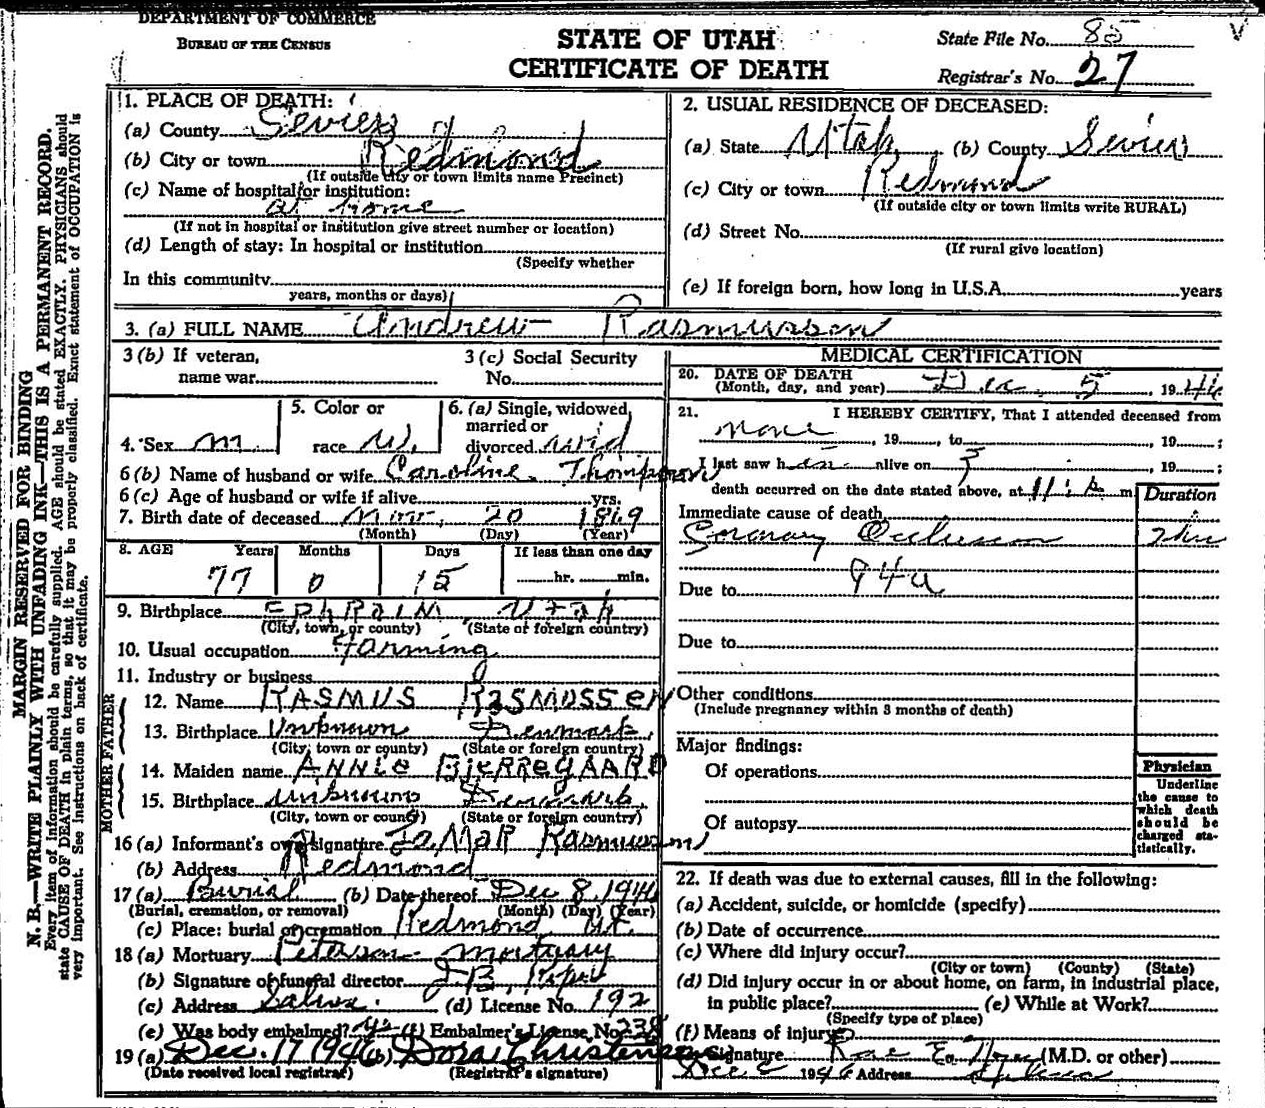 DEPARTMENT OF COMMERCE
BUREAU OF THE CENSUS
STATE OF UTAH
CERTIFICATE OF DEATH
State File No. 85
Registrar's No. 27
MARGIN RESERVED FOR BINDING
N. B.—WRITE PLAINLY WITH UNFADING INK—THIS IS A PERMANENT RECORD.
Every item of information should be carefully supplied. AGE should be stated EXACTLY. PHYSICIANS should
state CAUSE OF DEATH in plain terms, so that it may be properly classified. Exact statement of OCCUPATION is
very important. See instructions on back of certificate.
1. PLACE OF DEATH:
(a) County Sevier
(b) City or town Redmond
(If outside city or town limits name Precinct)
(c) Name of hospital or institution:
at home
(If not in hospital or institution give street number or location)
(d) Length of stay: In hospital or institution
(Specify whether
In this community
years, months or days)
2. USUAL RESIDENCE OF DECEASED:
(a) State Utah (b) County Sevier
(c) City or town Redmond
(If outside city or town limits write RURAL)
(d) Street No.
(If rural give location)
(e) If foreign born, how long in U.S.A. years
3. (a) FULL NAME Andrew Rasmussen
3 (b) If veteran,
name war
3 (c) Social Security
No.
4. Sex m
5. Color or
race W.
6. (a) Single, widowed,
married or
divorced wid
6 (b) Name of husband or wife Caroline Thompson
6 (c) Age of husband or wife if alive yrs.
7. Birth date of deceased Nov. 20 1869
(Month) (Day) (Year)
8. AGE Years Months Days If less than one day
77 0 15 hr. min.
9. Birthplace EPHRAIM UTAH
(City, town, or county) (State or foreign country)
10. Usual occupation Farming
11. Industry or business
FATHER
12. Name RASMUS RASMUSSEN
13. Birthplace Unknown Denmark
(City, town or county) (State or foreign country)
MOTHER
14. Maiden name ANNIE BJERREGAARD
15. Birthplace Unknown Denmark
(City, town or county) (State or foreign country)
16 (a) Informant's own signature LaMar Rasmussen
(b) Address Redmond
17 (a) Burial (b) Date thereof Dec 8, 1946
(Burial, cremation, or removal) (Month) (Day) (Year)
(c) Place: burial or cremation Redmond Ut.
18 (a) Mortuary Peterson Mortuary
(b) Signature of funeral director J.B.
(c) Address Salina. (d) License No. 192
(e) Was body embalmed? yes (f) Embalmer's License No. 238
19 (a) Dec. 17 1946 (b) Dora Christensen
(Date received local registrar) (Registrar's signature)
MEDICAL CERTIFICATION
20. DATE OF DEATH
(Month, day, and year) Dec. 5 1946
21. I HEREBY CERTIFY, That I attended deceased from
none , 19 , to , 19 ;
I last saw h alive on , 19 ;
death occurred on the date stated above, at m
Duration
Immediate cause of death
Coronary Occlusion 2 hrs
94a
Due to
Due to
Other conditions
(Include pregnancy within 3 months of death)
Major findings:
Of operations
Of autopsy
Physician
Underline
the cause to
which death
should be
charged sta-
tistically.
22. If death was due to external causes, fill in the following:
(a) Accident, suicide, or homicide (specify)
(b) Date of occurrence
(c) Where did injury occur?
(City or town) (County) (State)
(d) Did injury occur in or about home, on farm, in industrial place,
in public place? (e) While at Work?
(Specify type of place)
(f) Means of injury
Signature Rae E. (M.D. or other)
Dec 1946 Address Salina